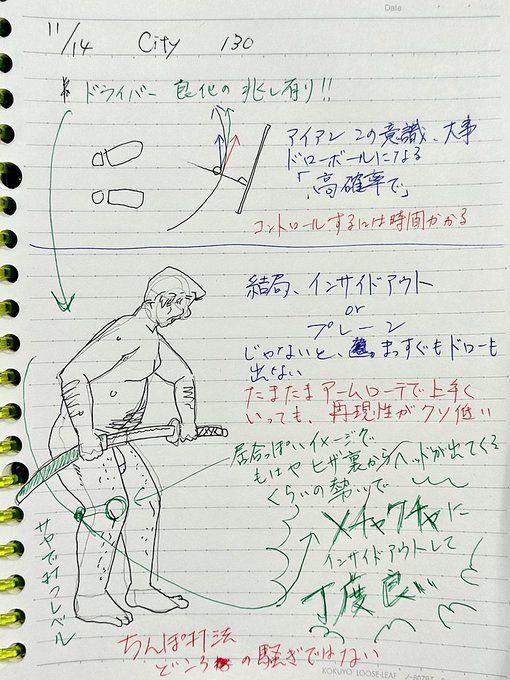 Date
11/14 City 130
* ドライバー 良化の兆し有り!!
アイアン この意識、大事
ドローボールになる
「高確率で」
コントロールするには時間かかる
結局、インサイドアウト
or
プレーン
じゃないと、まっすぐもドローも
出ない
たまたまアームローテで上手く
いっても、再現性がクソ低い
居合っぽいイメージで
もはや ヒザ裏からヘッドが出てくる
くらいの勢いで
メチャクチャに
インサイドアウトして
丁度良い
サヤで打つレベル
ちんぽ打法
どころの騒ぎではない
KOKUYO LOOSE-LEAF